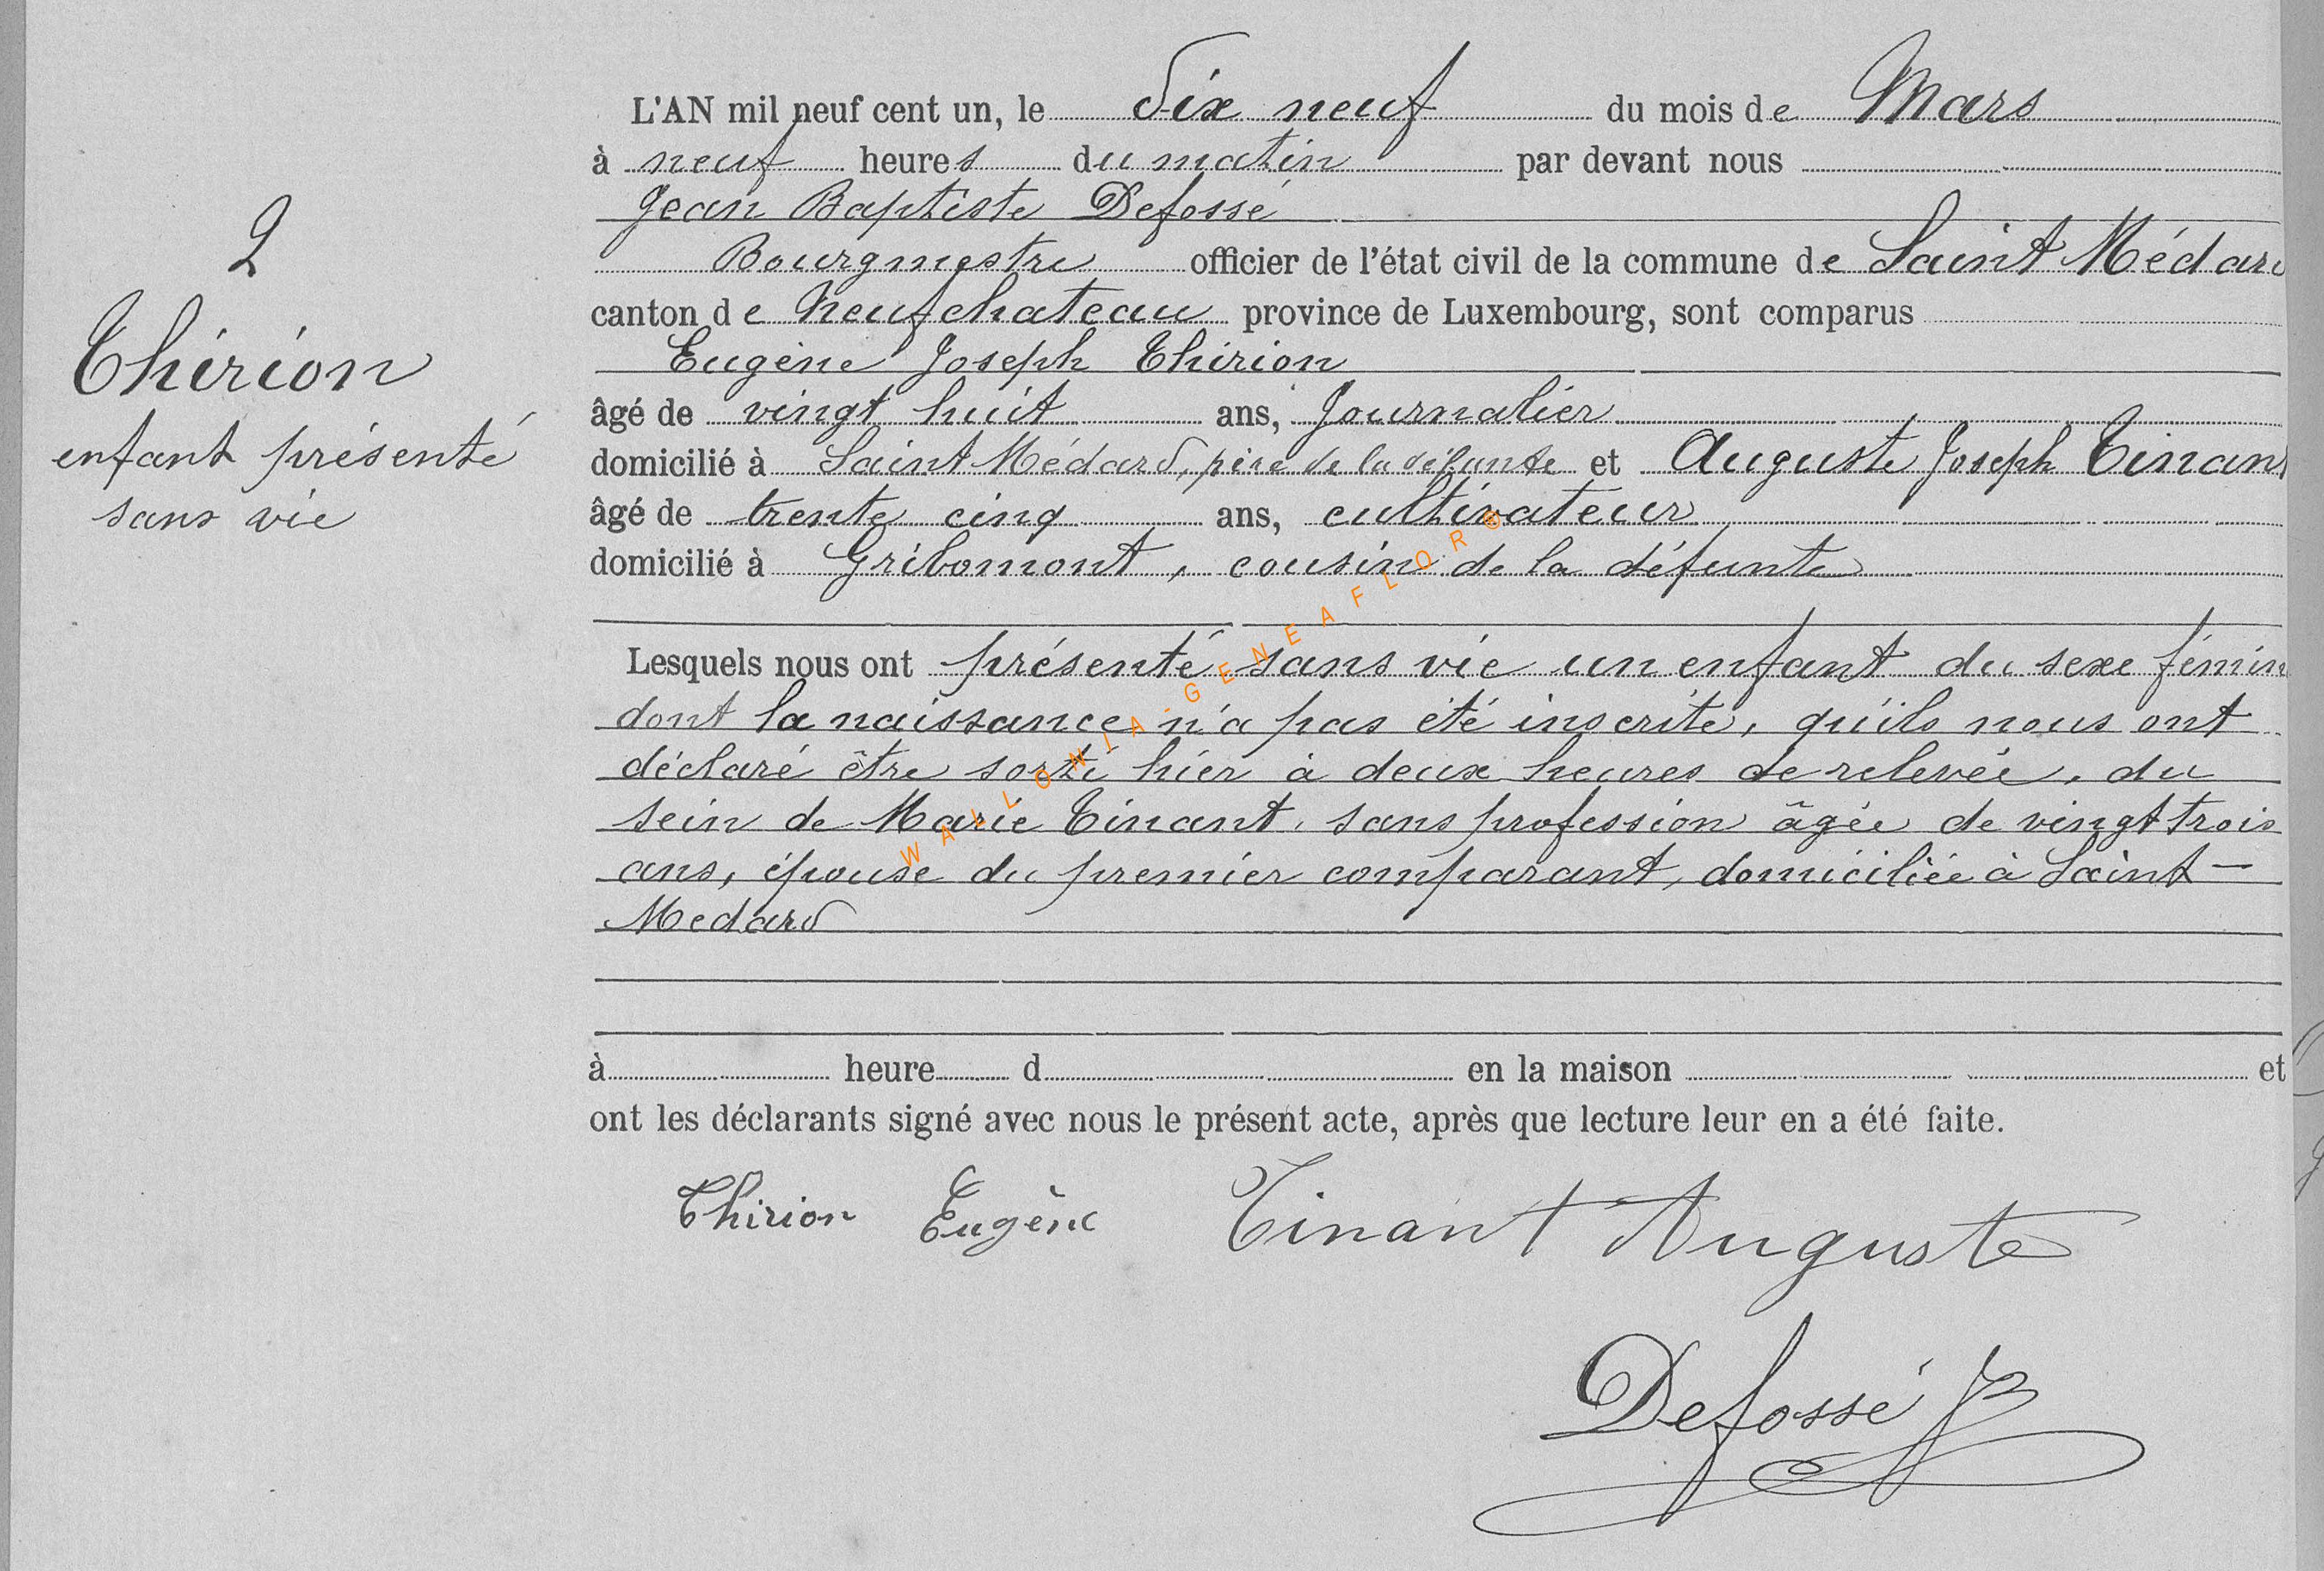 L'AN mil neuf cent un, le dix neuf du mois de Mars
à neuf heures du matin par devant nous
Jean Baptiste Defossé
Bourgmestre officier de l'état civil de la commune de Saint Médard
canton de Neufchateau province de Luxembourg, sont comparus
Eugène Joseph Thirion
âgé de vingt huit ans, Journalier
domicilié à Saint Médard, père de la défunte et Auguste Joseph Tinant
âgé de trente cinq ans, cultivateur
domicilié à Gribomont, cousin de la défunte
Lesquels nous ont présenté sans vie un enfant du sexe fémin
dont la naissance n'a pas été inscrite, qu'ils nous ont
déclaré être sorti hier à deux heures de relevée, du
sein de Marie Tinant, sans profession âgée de vingt trois
ans, épouse du premier comparant, domiciliée à Saint-
Medard
à heure d en la maison et
ont les déclarants signé avec nous le présent acte, après que lecture leur en a été faite.
Thirion Eugène Tinant Auguste
Defossé JB
2
Thirion
enfant présenté
sans vie
WALLONIA-GENEAFLOR©